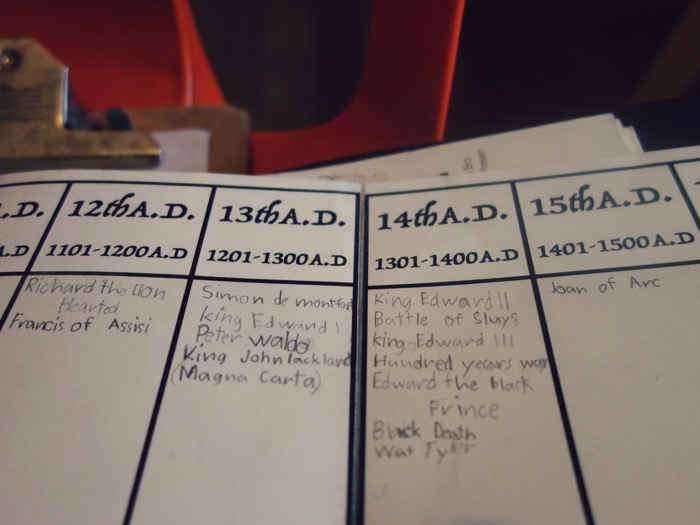 .D.
.D
12th A.D.
1101-1200 A.D
Richard the Lion
Hearted
Francis of Assisi
13th A.D.
1201-1300 A.D
Simon de montfort
King Edward I
Peter waldo
King John lackland
(Magna Carta)
14th A.D.
1301-1400 A.D
King Edward II
Battle of Sluys
king Edward III
Hundred years war
Edward the black
Prince
Black Death
Wat Tyler
15th A.D.
1401-1500 A.D
Joan of Arc